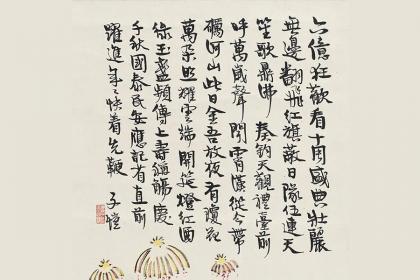 六億狂歡看十周盛典壯麗
無邊翻飛紅旗蔽日隊伍連天
笙歌鼎沸奏鈞天觀禮臺前
呼萬歲聲聞霄漢從今帶
礪河山此日金吾放夜有瓊花
萬朵照耀雲端開筵燈紅酒
綠玉盞頻傳上壽稱觴慶
千秋國泰民安應記有直前
躍進年々快着先鞭 子愷